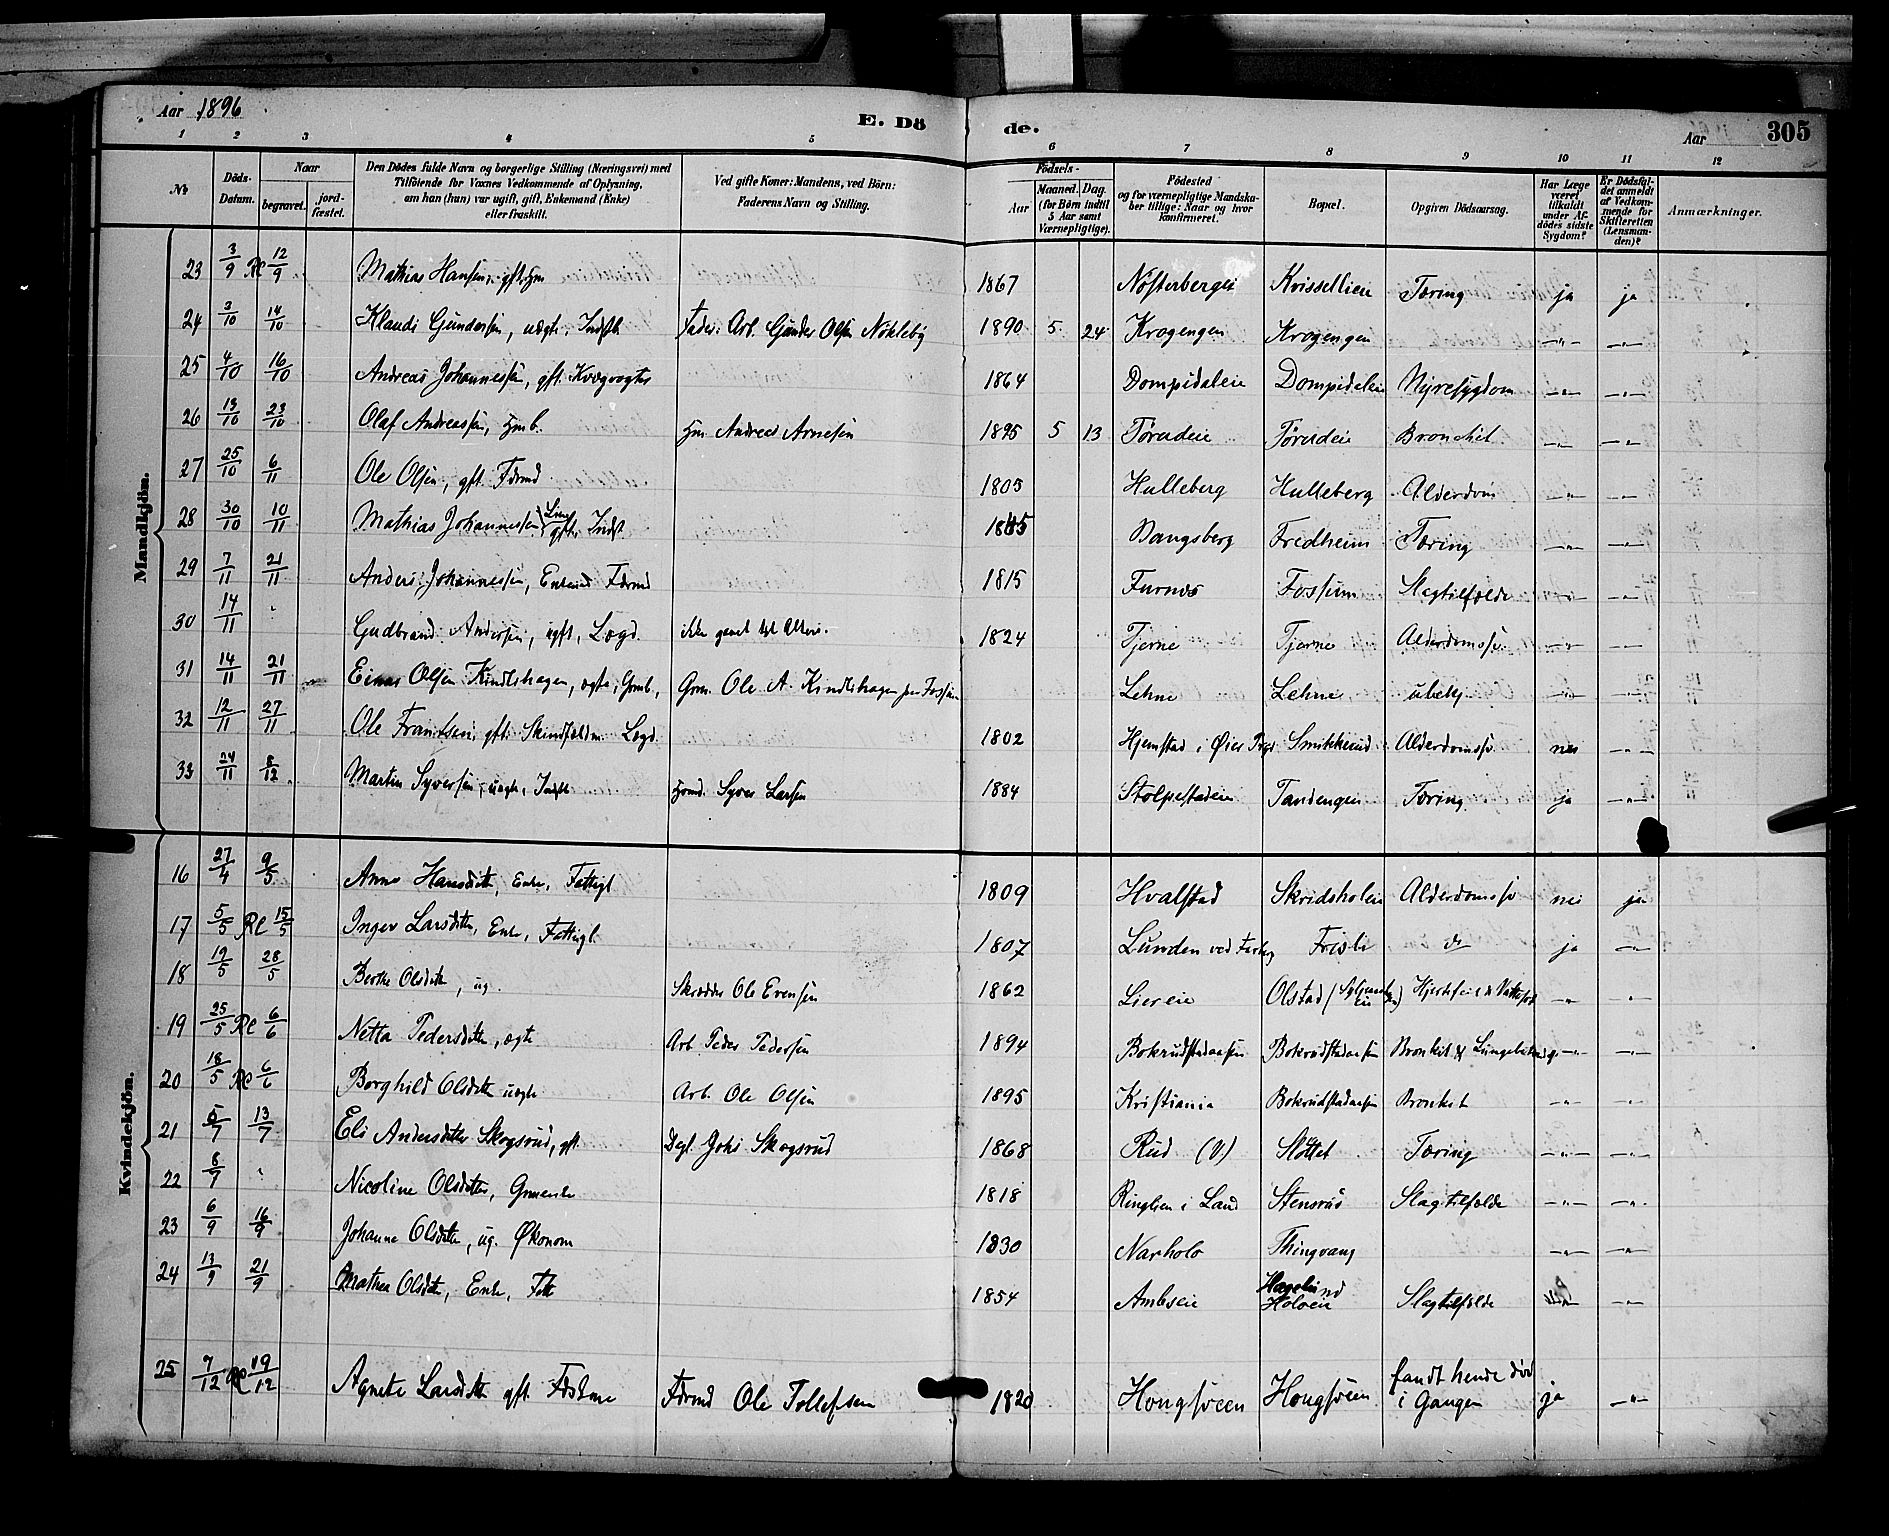 Aar 1896
E. Dö
de.
Aar
305
1 2 3 4 5 6 7 8 9 10 11 12
No
Döds-Datum.
Naar
begravet.
jord-fæstet.
Den Dödes fulde Navn og borgerlige Stilling (Næringsvei) med
Tilföiende for Voxnes Vedkommende af Oplysning,
om han (hun) var ugift, gift, Enkemand (Enke)
eller fraskilt.
Ved gifte Koner: Mandens, ved Börn:
Faderens Navn og Stilling.
Födsels-
Aar
Maaned. Dag.
(for Börn indtil
5 Aar samt
Værnepligtige).
Födested
og for værnepligtige Mandska-
ber tillige: Naar og hvor
konfirmeret.
Bopæl.
Opgiven Dödsaarsag.
Har Læge
været
tilkaldt
under Af-
dödes sidste
Sygdom?
Er Dödsfal-
det anmeldt
af Vedkom-
mende for
Skifteretten
(Lensman-
den)?
Anmærkninger.
Mandkjön.
23 3/9 Re 12/9 Mathias Hansen, gift, Hm 1867 Nösterbergei Krissellien Tæring ja ja
24 3/10 14/10 Klaudi Gundersen, uægte, Indst Fader: Arb. Gunder Olsen Nökleby 1890 5 24 Krogengen Krogengen —"— —"—
25 4/10 16/10 Andreas Johannessen, gft. Kvægvogter 1864 Dompidaleie Dompidaleie Nyresygdom —"— —"—
26 13/10 23/10 Olaf Andreassen, Hmb. Hm. Andreas Arnesen 1895 5 13 Törudeie Törudeie Bronchit —"— —"—
27 25/10 6/11 Ole Olsen, gft. Fdrmd 1805 Hulleberg Hulleberg Alderdom —"— —"—
28 30/10 10/11 Mathias Johannessen Lien gft. Indst Bangsberg Fredheim Tæring —"— —"—
29 7/11 21/11 Anders Johannessen, Enkemd Fdrmd 1815 Furnes Fossum Slagtilfælde —"— —"—
30 14/11 Gudbrand Andersen, ugft. Lægd. 1824 Tjerne Tjerne Alderdomssv. —"— —"—
31 14/11 21/11 Einar Olsen Kindlshagen, ægte, Grmb, Grm. Ole A. Kindlshagen Lehne Lehne ubekj —"— —"—
32 12/11 27/11 Ole Frantsen, gft. Skindfældm Lægd. 1802 Hjemstad i Öier Smikkerud Alderdomssv. nei —"—
33 24/11 8/12 Martin Syversen, uægte, Indst Hsmd. Syver Larsen 1884 Stolpestadeie Tandengen Tæring ja —"—
Kvindekjön.
16 27/4 9/5 Anne Hansdatter, Enke, Fattigl 1809 Hvalstad Skridsholeie Alderdomssv nei ja
17 5/5 Re 15/5 Inger Larsdatter, Enke, Fattigl. 1807 Lunden ved Frisli do ja —"—
18 19/5 28/5 Berthe Olsdatter, ug. Skrædder Ole Evensen 1862 Liereie Olstad —"— —"—
19 25/5 Re 6/6 Netta Pedersdatter, ægte Arb. Peder Pedersen 1894 Bokrudstadaasen Bokrudstadaasen —"— —"—
20 18/5 Re 6/6 Borghild Olsdatter uægte Arb. Ole Olsen 1895 Kristiania Bokrudstadaasen Bronkit —"— —"—
21 5/7 13/7 Eli Andersdatter Skogsrud, gft Dagl. Johs Skogsrud 1868 Rud (V) Slöttet Tæring —"— —"—
22 8/7 Nicoline Olsdatter, Grmenke 1818 Ringlien i Land Stensrud Slagtilfælde —"— —"—
23 6/9 16/9 Johanne Olsdatter, ug. Økonom 1830 Narholo Thingvang —"— —"—
24 13/9 21/9 Mathea Olsdatter, Enke, Ftt 1854 Ambseie Hagelund Holoeie Slagtilfælde —"—
25 7/12 Re 19/12 Agnete Larsdatter gft. Fdrkone Fdrmd Ole Tollefsen 1820 Hougsveen Hougsveen fandt hende död i Gangen ja —"—